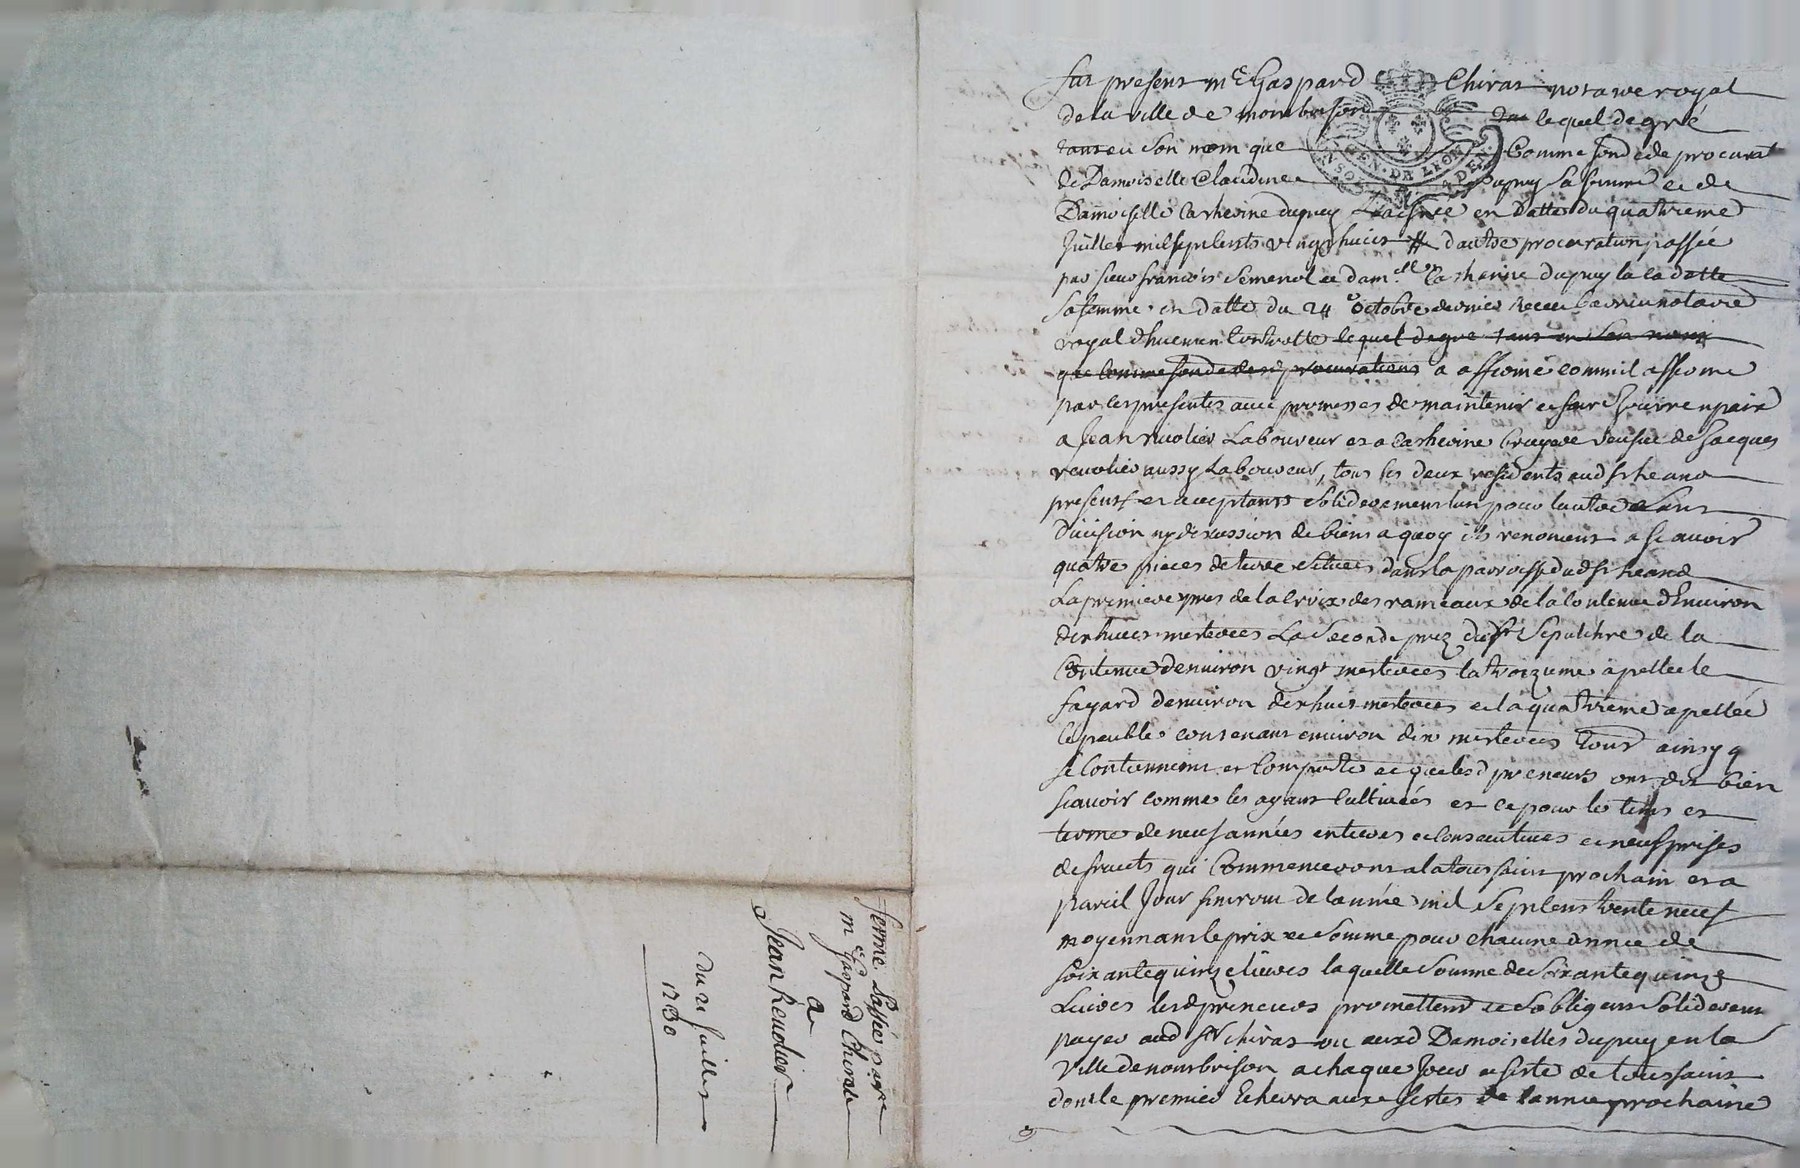 ferme passée par
me Gaspard Chirat
a
Jean Reuolier
du 21 juillet
1730
fut present me Gaspard Chirat notaire royal
de la ville de montbrison lequel de gré
tant en son nom que Comme fondé de procurat
de Damoiselle Claudine Dupuy sa femme et de
Damoiselle Catherine dupuy Laisnée en datte du quatrieme
Juillet mil sept cents vingt huict & dautre procuration passée
par sieur francois Semenol et dam.lle Catherine dupuy la cadette
sa femme en datte du 24e octobre dernier receu notaire
royal controllé lequel de gré tant en son nom
que comme fondé desd procurations a affermé comme il afferme
par ces presentes avec promesses de maintenir et faire jouir en paix
a Jean revolier Laboureur et a Catherine bruyere veufue de Jacques
revolier aussy Laboureur, tous les deux residents aud st heand
presents et acceptants solidairement lun pour lautre sans
diuision ny discussion de biens a quoy ils renoncent a scauoir
quatre pieces de terre situées dans la parroisse dud st heand
La premiere pres de la croix des rameaux de la contenue d'Enuiron
dixhuict mesterées La seconde prez du st Sepulchre de la
Contenue denuiron vingt mesterées la troizieme apellée le
fayard denuiron dixhuict mesterées et la quatrieme apellée
le peuble contenant enuiron dix mesterées tout ainsy q
se contiennent et comporte et que lesd preneurs ont dit bien
scauoir comme les ayant cultiuées et ce pour le tems et
terme de neuf années entieres et consecutiues et neuf prises
de fruits qui Commenceront a la toussaint prochain et a
pareil Jour finiront de lannée mil sept cent trente neuf
moyennant le prix et somme pour chacune année de
soixante quinze liures laquelle somme de soixante quinze
Liures lesd preneurs promettent et sobligent solidairem
payer aud sr chirat ou auxd Damoiselles dupuy en la
ville de montbrison a chaque Jour et feste de toussaint
dont le premier Echerra aux festes de lannée prochaine